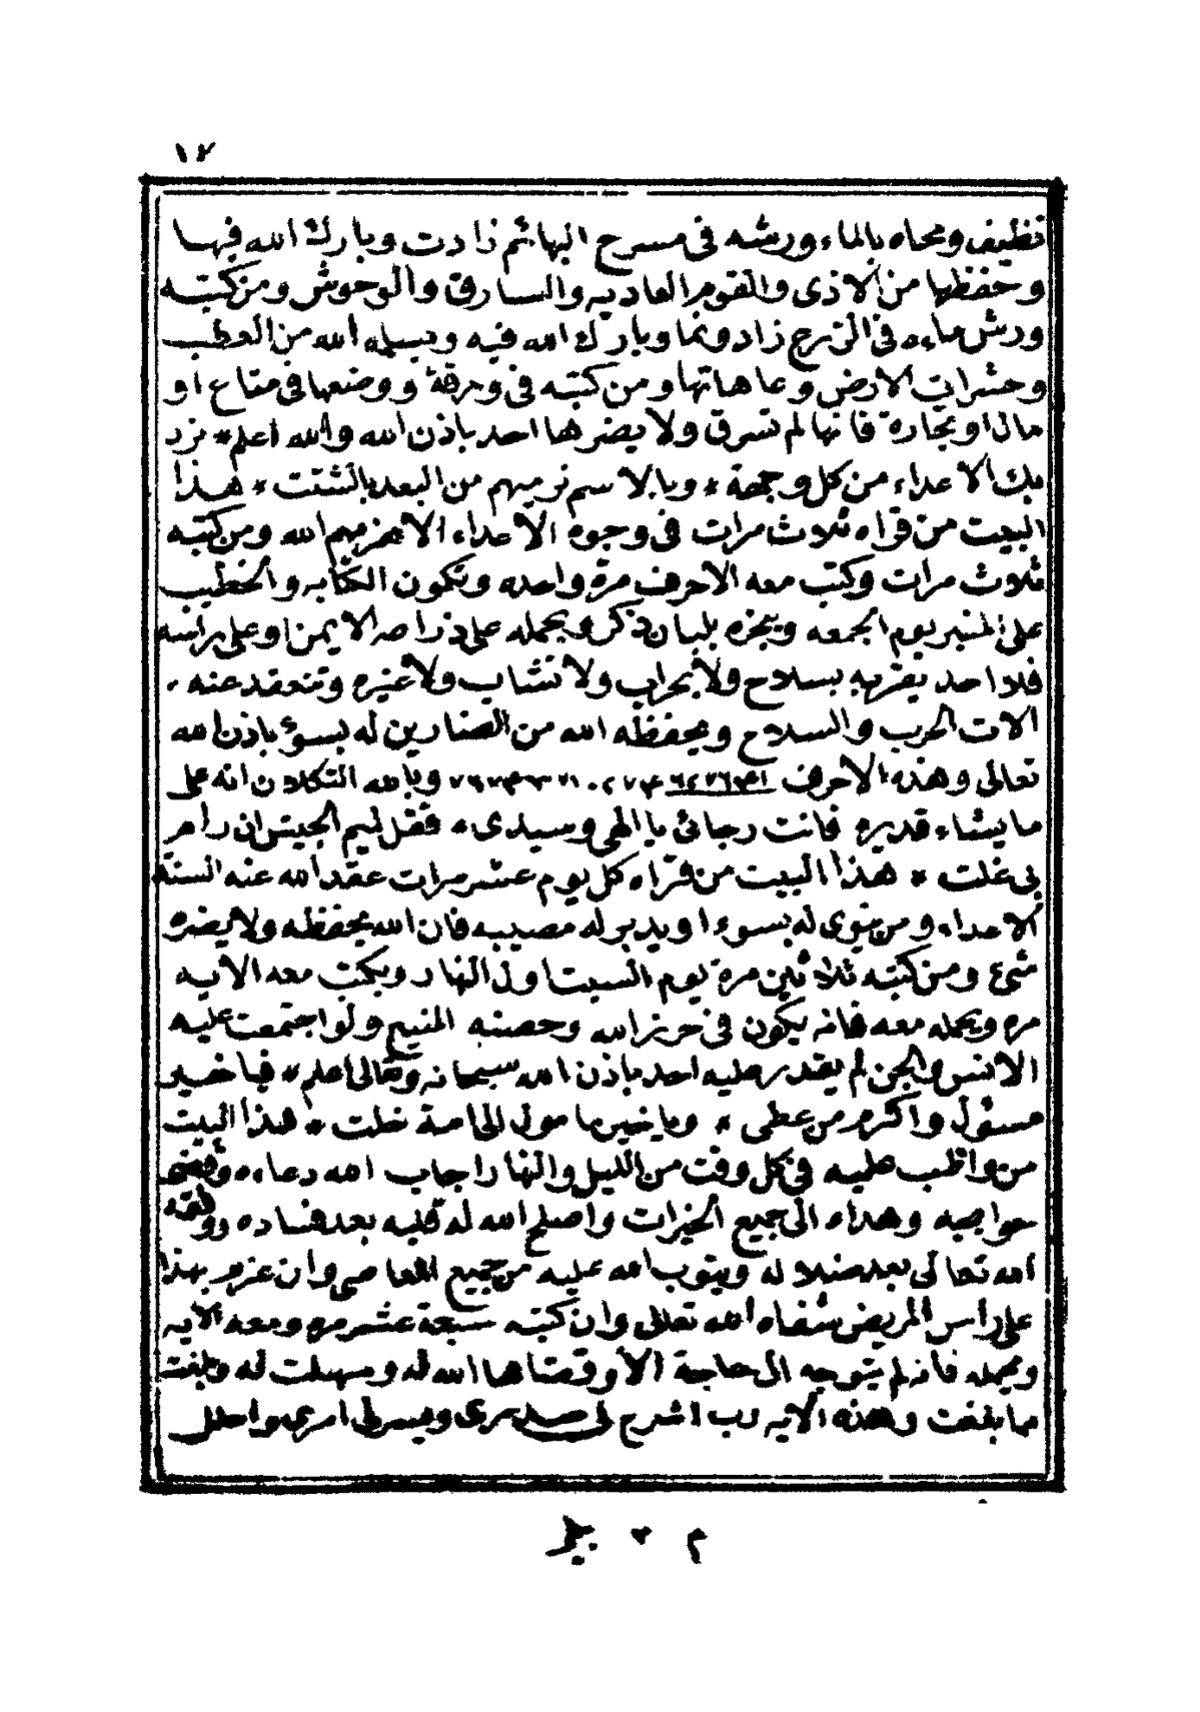 ١٧
نظيف ومحاه بالماء ورشه فى مسرح البهائم زادت وبارك الله فيها
وحفظها من الاذى والقوم العاديه والسارق والوحوش ومن كتبه
ورش ماءه فى الزرع زاد ونما وبارك الله فيه ويسلمه الله من العطب
وحشرات الارض وعاهاتها ومن كتبه فى ورقة ووضعها فى متاع او
مال او تجارة فانها لم تسرق ولا يضرها احد باذن الله والله اعلم * نرد
بك الاعداء من كل وجهة * وبالاسم نرميهم من البعد بالشتت * هذا
البيت من قراه ثلاث مرات فى وجوه الاعداء الا هزمهم الله ومن كتبه
ثلاث مرات وكتب معه الاحرف مرة واحده وتكون الكتابه والخطيب
على المنبر يوم الجمعه ويبخره بلبان ذكر ويحمله على ذراعه الايمن او على راسه
فلا احد يقربه بسلاح ولا بحراب ولا نشاب ولا غيره وتنعقد عنه
الات الحرب والسلاح ويحفظه الله من الضارين له بسوء باذن الله
تعالى وهذه الاحرف وبالله التكلان انه على
ما يشاء قدير * فانت رجائى يا الهى وسيدى * فقل لميم الجيش ان رام
بى غلت * هذا البيت من قراه كل يوم عشر مرات عقد الله عنه السنة
الاعداء ومن ينوى له بسوء او يدبر له مصيبه فان الله يحفظه ولا يضره
شئ ومن كتبه ثلاثين مرة يوم السبت اول النهار ويكتب معه الايه
مره ويحمله معه فانه يكون فى حرز الله وحصنه المنيع ولو اجتمعت عليه
الانس والجن لم يقدر عليه احد باذن الله سبحانه وتعالى اعلم * فيا خير
مسؤل واكرم من عطى * ويا خير مامول الى امة خلت * هذا البيت
من واظب عليه فى كل وقت من الليل والنهار اجاب الله دعاءه وقضى
حوايجه وهداه الى جميع الخيرات واصلح الله له قلبه بعد فساده ووفقه
الله تعالى بعد ضلاله ويتوب الله عليه من جميع المعاصى وان عزم بهذا
على راس المريض شفاه الله تعالى وان كتبه سبعة عشر مره ومعه الايه
ويحمله فانه لم يتوجه الى حاجة الا وقضاها الله له وسهلت له وبلغت
ما بلغت وهذه الايه رب اشرح لى صدرى ويسرلى امرى واحلل
م ٣